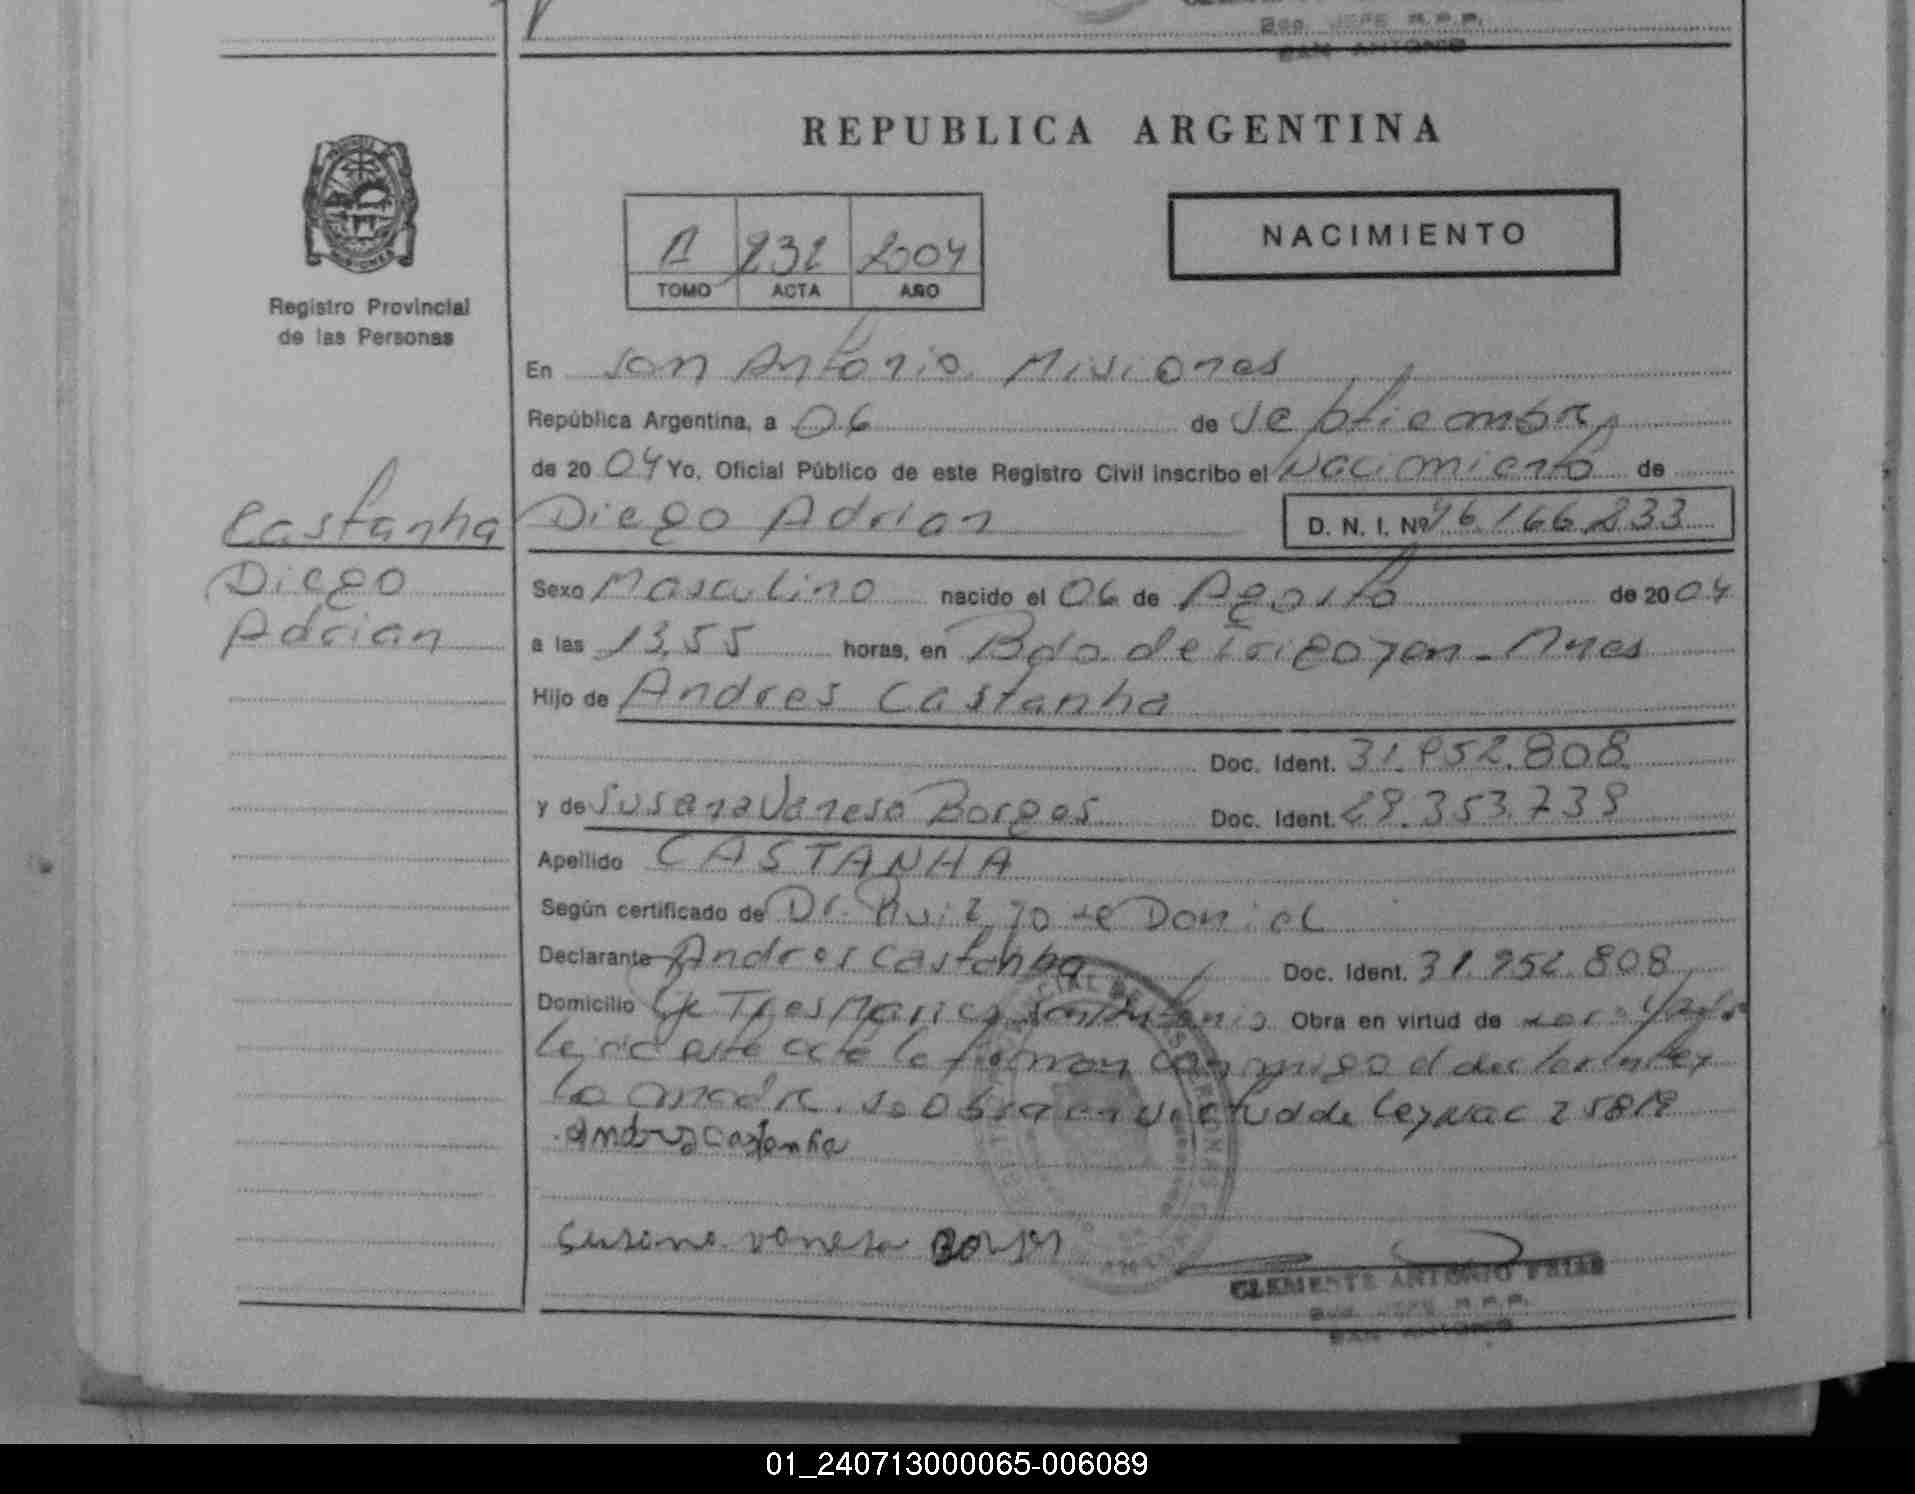 Bco. JEFE R.P.P.
SAN ANTONIO
REPUBLICA ARGENTINA
NACIMIENTO
232 2004
TOMO ACTA AÑO
Registro Provincial
de las Personas
En San Antonio Misiones
República Argentina, a 06 de septiembre
de 2004 Yo, Oficial Público de este Registro Civil inscribo el Nacimiento de
Castanha
Diego
Adrian
Diego Adrian D. N. I. Nº 46.166.233
Sexo Masculino nacido el 06 de Agosto de 2004
a las 13,55 horas, en Bdo. de Irigoyen - Mnes
Hijo de Andres Castanha
Doc. Ident. 31.952.808
y de Susana Vanesa Borges Doc. Ident. 29.353.739
Apellido CASTANHA
Según certificado de Dr. Ruiz Jose Daniel
Declarante Andres Castanha Doc. Ident. 31.952.808
Domicilio Tres Marias San Antonio Obra en virtud de
este acta la firman conmigo el declarante y
la madre. se Obra en virtud de Ley Nac 25819
Andres Castanha
Susana vanesa Borges
CLEMENTE ANTONIO FRIAS
Bco. JEFE R.P.P.
SAN ANTONIO
01_240713000065-006089